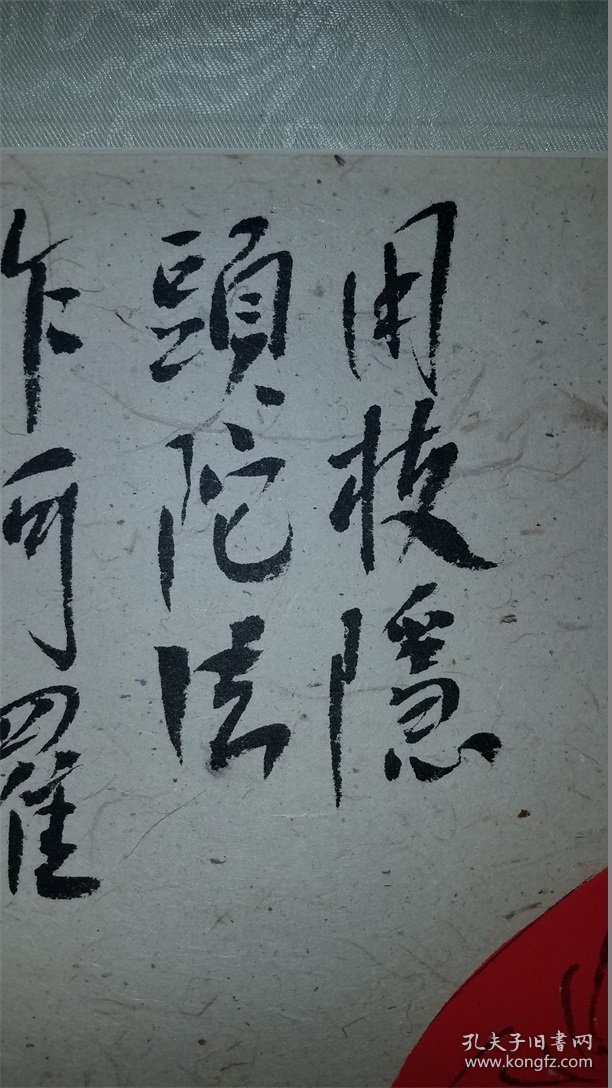 用枝隱
頭陀法
乍可羅
孔夫子旧书网
www.kongfz.com